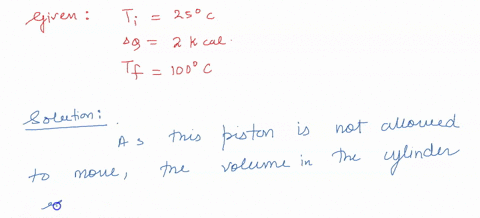 Given: Ti = 25°C
ΔQ = 2 kcal.
Tf = 100°C
Solution:
As this piston is not allowed
to move, the volume in the cylinder